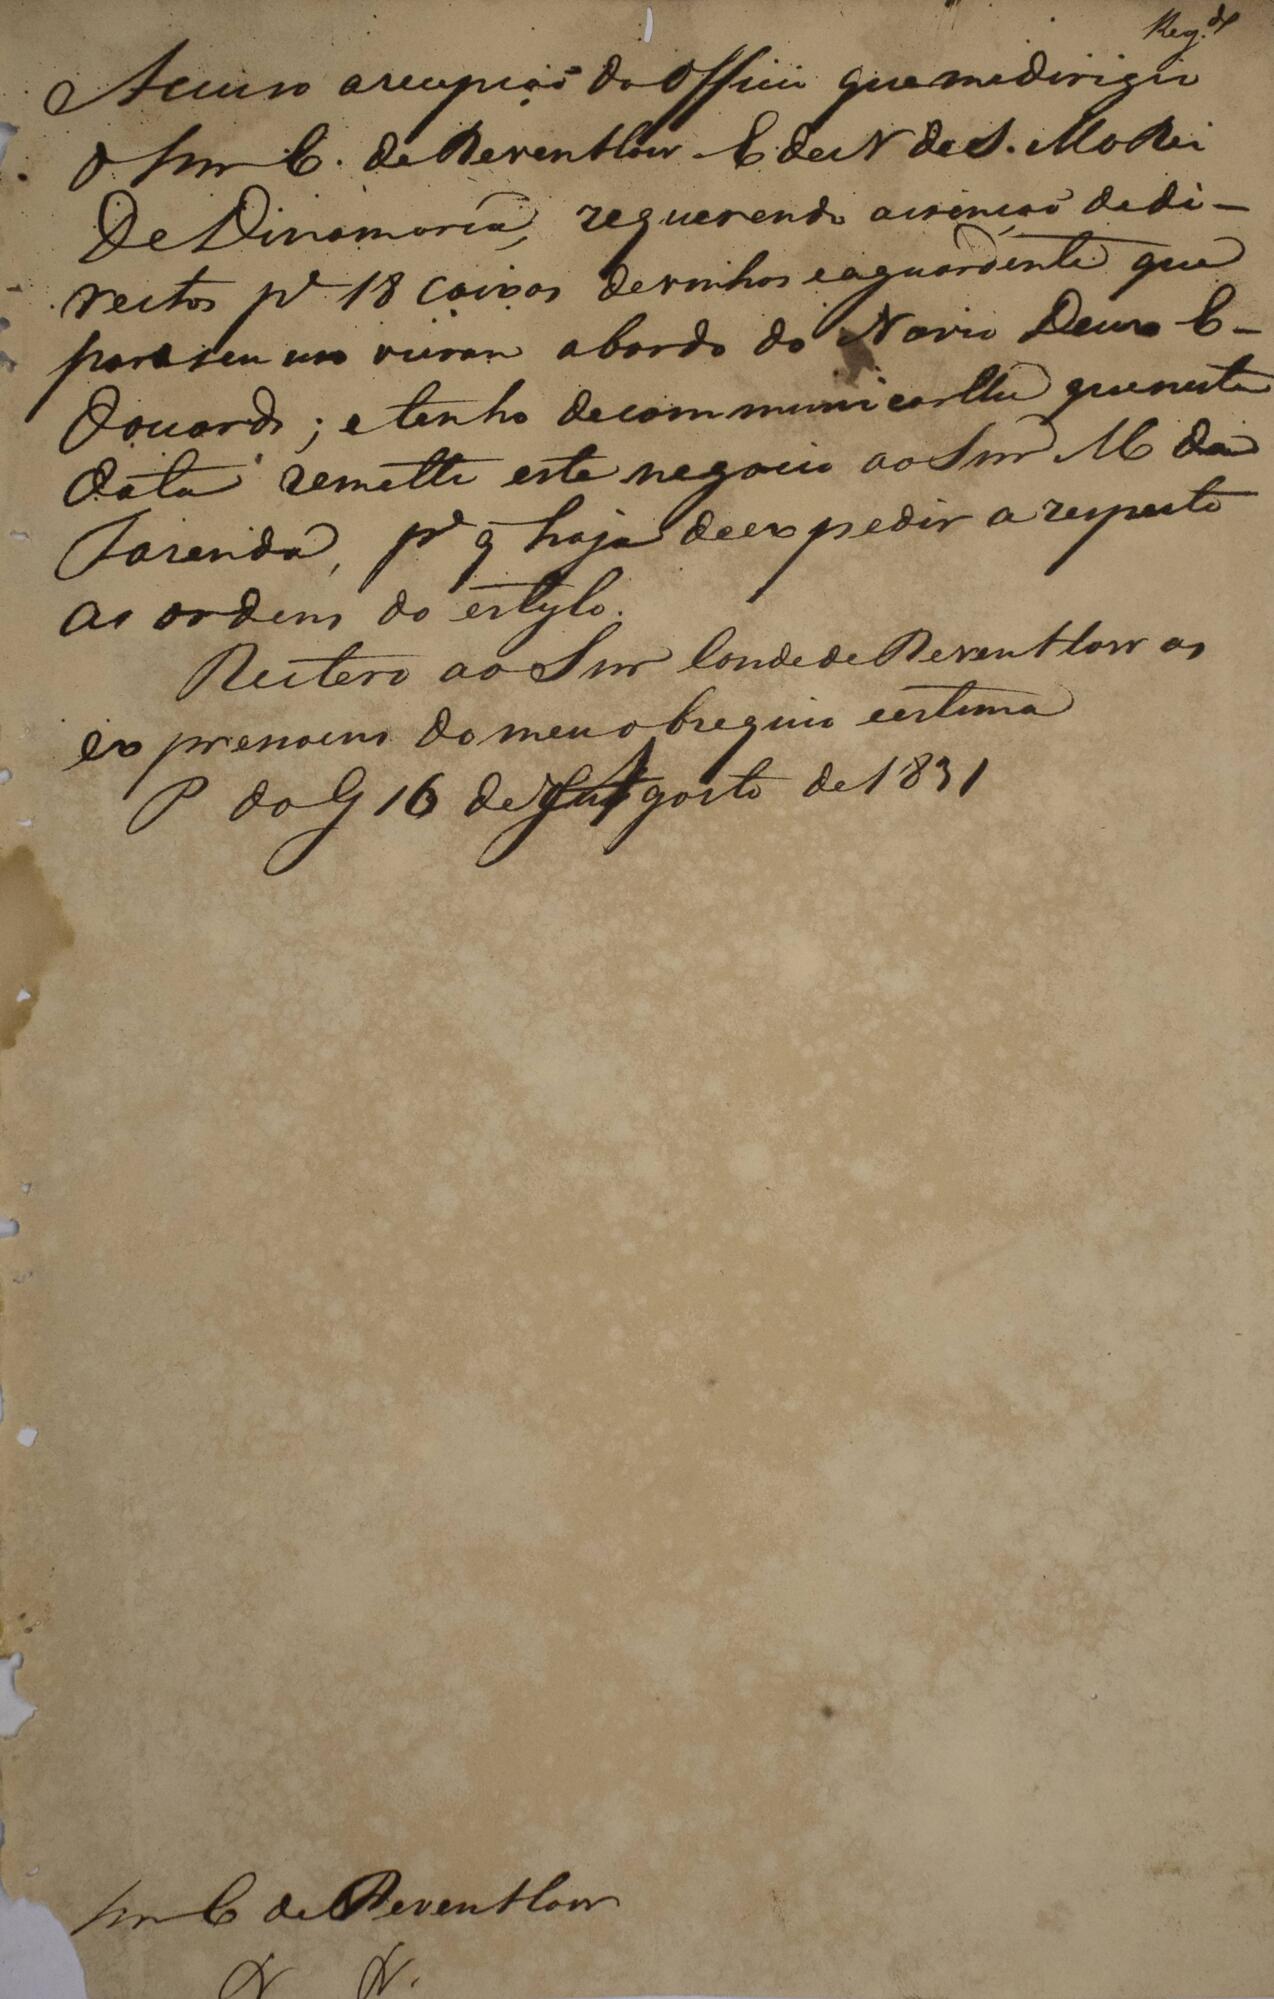 Reg.do
Accuso a recepção do Officio que me dirigio
o Snr C. de Reventlow E de N de S. M o Rei
De Dinamarca, requerendo a isenção de di-
reitos pa 18 caixas de vinhos e aguardente que
para seu uso vierão a bordo do Navio Deux E-
douards; e tenho de communicar lhe que nesta
data remetti este negocio ao Snr M da
Fazenda, pa q haja de expedir a respeito
as ordens do estylo.
Reitero ao Snr Conde de Reventlow as
expressoens do meu obsequio e estima
P do G 16 de Agosto de 1831
Snr C de Reventlow
N N.